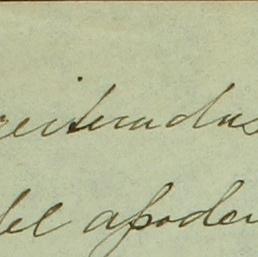 reiteradas
del apoder